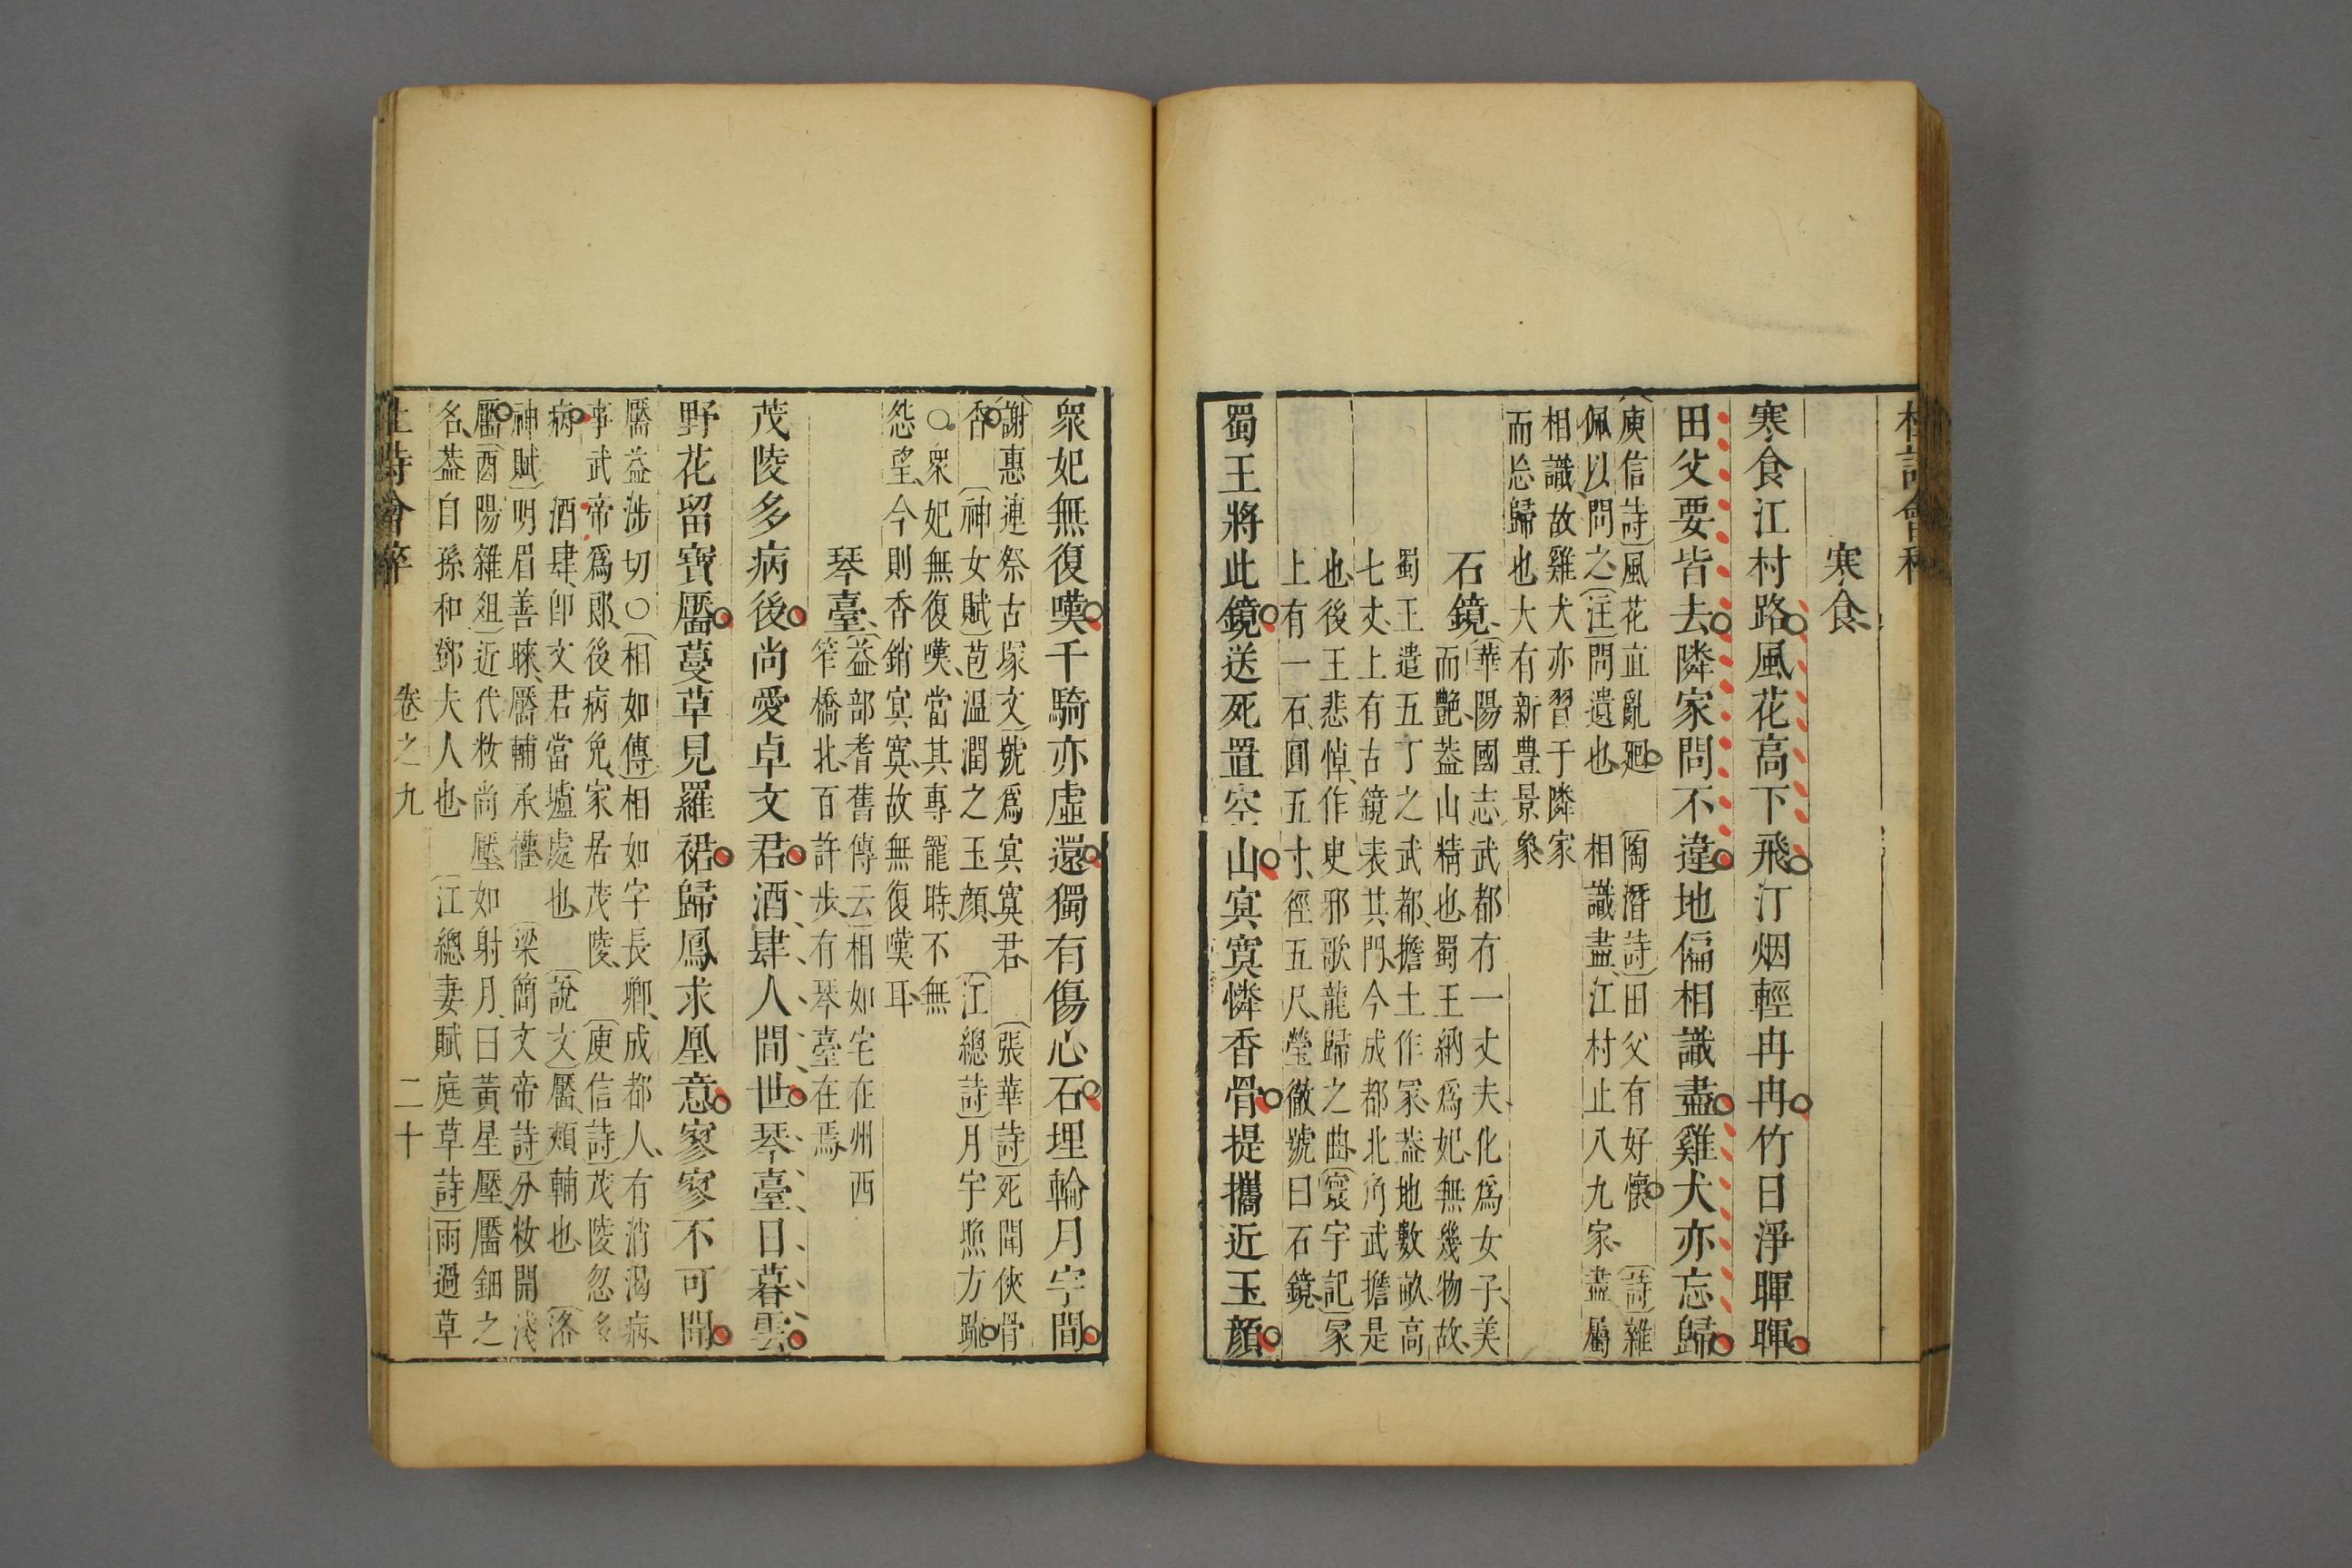 杜詩會稡
寒食
寒食江村路風花高下飛汀烟輕冉冉竹日淨暉暉
田父要皆去隣家問不違地偏相識盡雞犬亦忘歸
庾信詩風花直亂廻 陶潛詩田父有好懷 詩雜
佩以問之注問遺也 相識盡江村止八九家盡屬
相識故雞犬亦習于隣家
而忘歸也大有新豊景象
石鏡
華陽國志武都有一丈夫化爲女子美
而艷葢山精也蜀王納爲妃無幾物故
蜀王遣五丁之武都擔土作冢葢地數畝高
七丈上有古鏡表其門今成都北角武擔是
也後王悲悼作臾邪歌龍歸之曲寰宇記冢
上有一石圓五寸徑五尺瑩徹號曰石鏡
蜀王將此鏡送死置空山冥寞憐香骨提攜近玉顏
衆妃無復嘆千騎亦虛還獨有傷心石埋輪月宇間
謝惠連祭古塚文號爲冥寞君 張華詩死聞俠骨
香 神女賦苞温潤之玉顏 江總詩月宇照方疏
○衆妃無復嘆當其專寵時不無
怨望今則香銷冥寞故無復嘆耳
琴臺
益部耆舊傳云相如宅在州西
笮橋北百許步有琴臺在焉
茂陵多病後尚愛卓文君酒肆人間世琴臺日暮雲
野花留寶靨蔓草見羅裙歸鳳求凰意寥寥不可聞
靨益涉切○相如傳相如字長卿成都人有消渴病
事武帝爲郎後病免家居茂陵 庾信詩茂陵忽多
病 酒肆卽文君當壚處也 說文靨頰輔也 洛
神賦明眉善睞靨輔承權 梁簡文帝詩分妝開淺
靨酉陽雜俎近代妝尚壓如射月曰黃星壓靨鈿之
名葢自孫和鄧夫人也 江總妻賦庭草詩雨過草
杜詩會稡 卷之九 二十